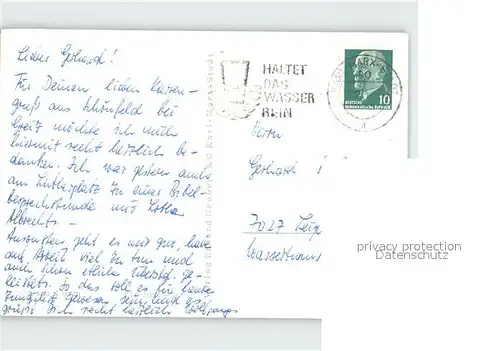 Lieber Gerhard!
Für Deinen lieben Karten-
gruß aus Schönfeld bei
Greiz möchte ich mich
hiermit recht herzlich be-
danken. Ich war gestern auch
am Lutherplatz zu einer Bibel-
besprechstunde mit Lothar
Albrecht. -
Ansonsten geht es mir gut, habe
auf Arbeit viel zu tun und
auch schon etliche Überstd. ge-
leistet. So das soll es für heute
gewesen sein und es
grüßt Dich recht herzlich Wolfgang
HALTET
DAS
WASSER
REIN
DEUTSCHE
DEMOKRATISCHE REPUBLIK
10
Herrn
Gerhard
7027 Leip
Wasserturms
privacy protection
Datenschutz